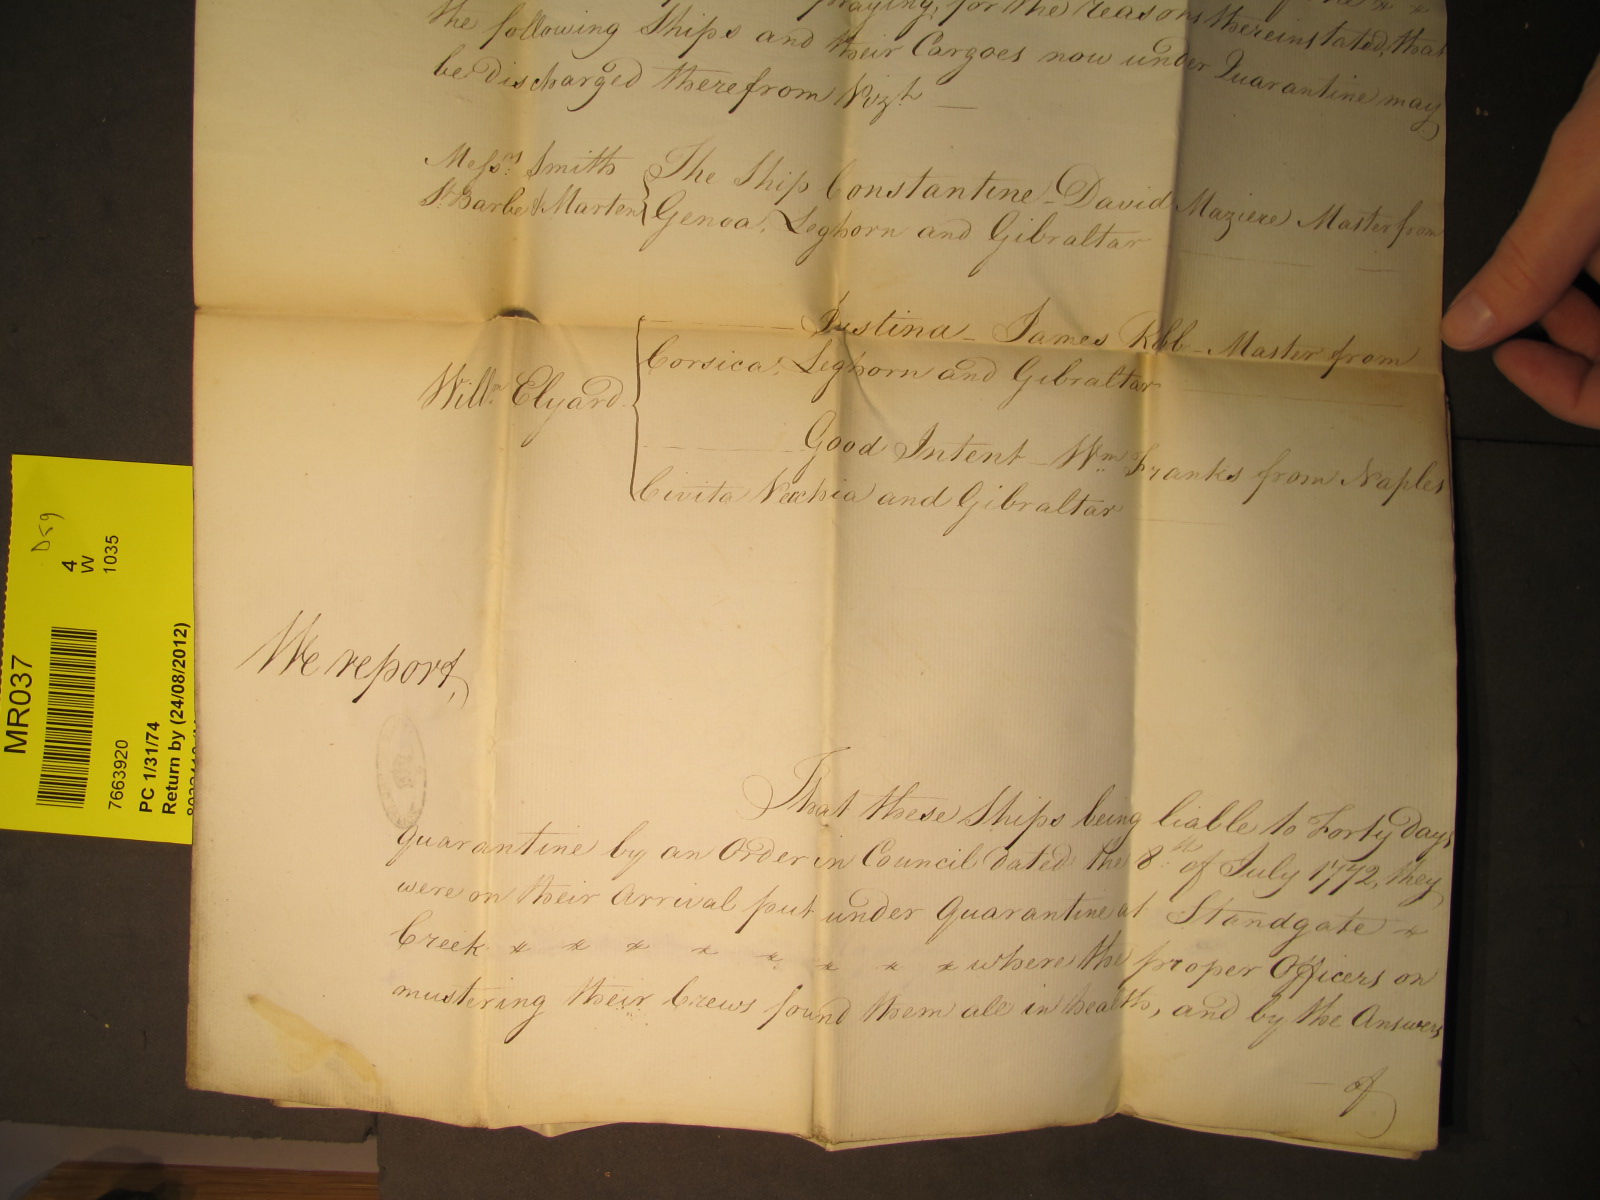 praying, for the reasons therein stated, that
the following Ships and their Cargoes now under Quarantine may
be discharged therefrom Vizt.
Messrs. Smith
St. Barbe & Marten
The Ship Constantine - David Maziere Master from
Genoa, Leghorn and Gibraltar
Willm. Elyard
Justina - James Robb - Master from
Corsica, Leghorn and Gibraltar
Good Intent - Wm. Franks from Naples
Civita Vecchia and Gibraltar
We report,
That these Ships being liable to Forty Days
Quarantine by an Order in Council dated the 8th. of July 1772, they
were on their Arrival put under Quarantine at Standgate
Creek where the proper Officers on
mustering their Crews found them all in health, and by the Answers
of
D59
4
W
1035
MR037
7663920
PC 1/31/74
Return by (24/08/2012)